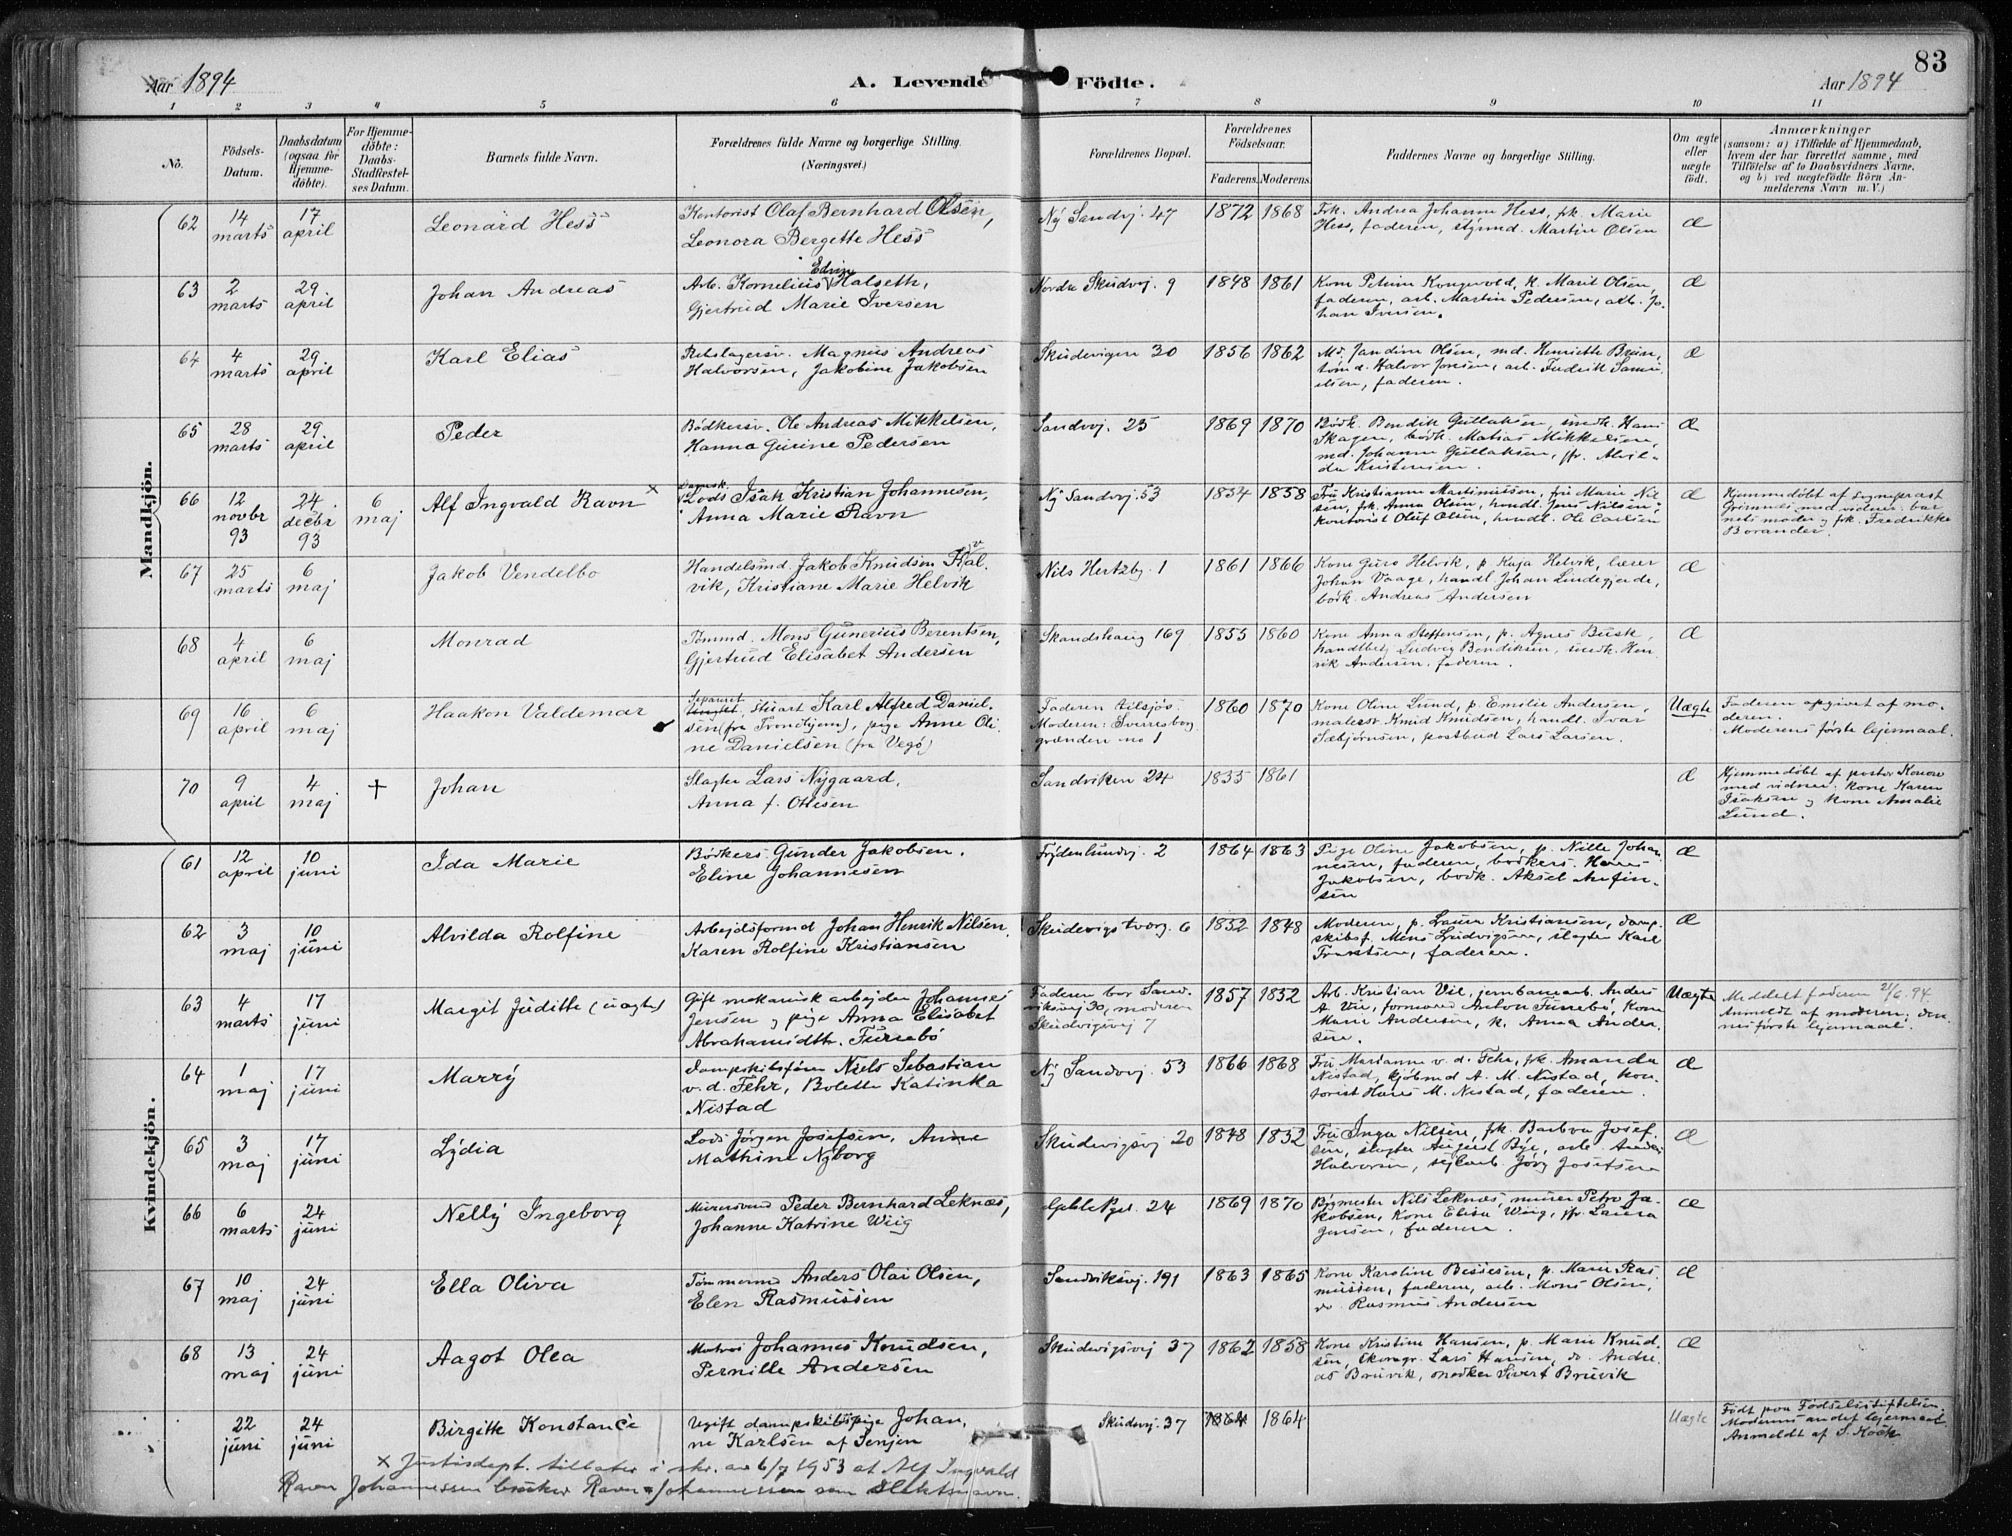 83
Aar 1894
A. Levende Födte.
Aar 1894
1 2 3 4 5 6 7 8 9 10 11
No.
Födsels-Datum.
Daabsdatum (ogsaa for Hjemme-döbte).
For Hjemme-döbte: Daabs-Stadfæstel-ses Datum.
Barnets fulde Navn.
Forældrenes fulde Navne og borgerlige Stilling. (Næringsvei.)
Forældrenes Bopæl.
Forældrenes Födselsaar.
Faderens. Moderens.
Faddernes Navne og borgerlige Stilling.
Om ægte eller uægte födt.
Anmærkninger
(saasom: a) i Tilfælde af Hjemmedaab, hvem der har forrettet samme, med Tilföielse af to Daabsvidners Navne, og b) ved uægtefödte Börn An-melderens Navn m. V.)
Mandkjön.
62 14 marts 17 april Leonard Hess
Kontorist Olaf Bernhard Olsen,
Leonora Bergette Hess
Ny Sandvj. 47 1872 1868
Frk. Andrea Johanne Hess, frk. Marie
Hess, faderen, styrmd. Martin Olsen
æ
63 2 marts 29 april Johan Andreas
Arb. Kornelius Edvin Halseth,
Gjertrud Marie Iversen
Nordre Skudevj. 9 1848 1861
Kone Petrine Kongsvold, k. Marit Olsen,
faderen, arb. Martin Pedersen, arb. Jo-
han Iversen.
æ
64 4 marts 29 april Karl Elias
Rebslagersv. Magnus Andreas
Halvorsen, Jakobine Jakobsen
Skudevigen 30 1856 1862
Md. Jandine Olsen, md. Henriette Brun,
tömd. Halvor Jensen, arb. Fredrik Samu-
elsen, faderen.
æ
65 28 marts 29 april Peder
Bödkersv. Ole Andreas Mikkelsen,
Hanna Gurine Pedersen
Sandvj. 25 1869 1870
Bödk. Bendik Gullaksen, snedk. Hans
Skagen, bödk. Matias Mikkelsen,
md. Johanne Gullaksen, jfr. Alvil-
da Kristensen
æ
66 12 novbr 93 24 decbr 93 6 maj Alf Ingvald Ravn ×
Dampsk.
Lods Isak Kristian Johannesen,
Anna Marie Ravn
Ny Sandvj. 53 1854 1858
Fru Kristianne Martinussen, fru Marie Nil-
sen, frk. Anna Olsen, handl. Jens Nilsen,
kontorist Oluf Olsen, handl. Ole Carlsen
æ
Hjemmedöbt af sognepræst
Grimnes med vidner: bar-
nets moder og frk. Fredrikke
Borander.
67 25 marts 6 maj Jakob Vendelbo
Handelsmd. Jakob Knudsen Hal-
vik, Kristiane Marie Helvik
Nils Hertzbg. 1 1861 1866
Kone Guro Helvik, p. Kaja Helvik, lærer
Johan Vaage, handl. Johan Lindegjerde,
bödk. Andreas Andersen
æ
68 4 april 6 maj Monrad
Tömmd. Mons Gunerius Berentsen,
Gjertrud Elisabet Andersen
Skandshaug 169 1855 1860
Kone Anna Steffensen, p. Agnes Busk,
handlbetj. Ludvig Bendiksen, snedk. Hen-
rik Andersen, faderen.
æ
69 16 april 6 maj Haakon Valdemar
Separeret
stuart Karl Alfred Daniel-
sen (fra Trondhjem), pige Anne Oli-
ne Danielsen (fra Vegö)
Faderen tilsjös.
Moderen: Sverresborg
grænden no 1
1860 1870
Kone Oline Lund, p. Emilie Andersen,
malersv. Knud Knudsen, handl. Ivar
Sæbjörnsen, postbud Lars Larsen.
Uægte
Faderen opgivet af mo-
deren.
Moderens förste lejermaal.
70 9 april 4 maj † Johan
Slagter Lars Nygaard,
Anna f. Ottesen
Sandviken 24 1835 1861
æ
Hjemmedöbt af pastor Konow
med vidner: kone Karen
Isaksen og kone Amalie
Lund.
Kvindekjön.
61 12 april 10 juni Ida Marie
Bödkers. Gunder Jakobsen,
Eline Johannesen
Frydenlundvj. 2 1864 1863
Pige Oline Jakobsen, p. Nille Johan-
nesen, faderen, bödkers. Hans
Jakobsen, bödk. Aksel Anfin-
sen
æ
62 3 maj 10 juni Alvilda Rolfine
Arbejdsformd Johan Henrik Nilsen,
Karen Rolfine Kristiansen
Skudevigstverg. 6 1852 1848
Moderen, p. Laura Kristiansen, damp-
skibsf. Mons Ludvigsen, slagter Karl
Frantsen, faderen.
æ
63 4 marts 17 juni Margit Juditte (uægte)
Gift mekanisk arbejder Johannes
Jensen og pige Anna Elisabet
Abrahamsdtr. Furebö
Faderen bor Sand-
viksvej 30, moderen
Skudevigsvj 7
1857 1852
Arb. Kristian Vie, jernbanearb. Anders
A. Vie, formand Anton Furebö, Kone
Marie Andersen, k. Anna Ander-
sen.
Uægte
Meddelt faderen 21/6. 94.
Anmeldt af moderen; den-
nes förste lejermaal.
64 1 maj 17 juni Marry
Dampskibsförer Niels Sebastian
v. d. Fehr, Bolette Katinka
Nistad
Ny Sandvj. 53 1866 1868
Fru Marianne v. d. Fehr, frk. Amanda
Nistad, kjöbmd A. M. Nistad, kon-
torist Hans M. Nistad, faderen.
æ
65 3 maj 17 juni Lydia
Lods Jörgen Josefsen, Anne
Mathine Nyborg
Skudevigsvj 20 1848 1852
Fru Inga Nilsen, frk. Barbra Josef-
sen, slagter August Bye, arb. Anders
Halvorsen, sejlarb. Jörg. Josefsen
æ
66 6 marts 24 juni Nelly Ingeborg
Murersvend Peder Bernhard Leknæs,
Johanne Katrine Wiig
24 1869 1870
Bygmester Nils Leknæs, murer Petro Ja-
kobsen, Kone Elisa Wiig, jfr. Laura
Jensen, faderen.
æ
67 10 maj 24 juni Ella Oliva
Tömmermd Anders Olai Olsen,
Elen Rasmussen
Sandviksvj. 191 1863 1865
Kone Karoline Bessesen, p. Marie Ras-
mussen, faderen, arb. Mons Olsen,
do. Rasmus Andersen
æ
68 13 maj 24 juni Aagot Olea
Matros Johannes Knudsen,
Pernille Andersen
Skudevigsvej 37 1862 1858
Kone Kristine Hansen, p. Marie Knud-
sen, Lars Hansen, do. Andre-
as Bruvik, snedker Sivert Bruvik
æ
22 juni 24 juni Birgitte Konstance
Ugift dampskibspige Johan-
ne Karlsen af Senjen
Skudevj. 37 1864
Uægte
Födt paa Födselsstiftelsen.
Moderens andet lejermaal.
Anmeldt af S. Kock
× Justisdept. tillater i skr. av 6/7 1953 at Alf Ingvald
Ravn Johannessen bruker Ravn-Johannessen som slektsnavn.